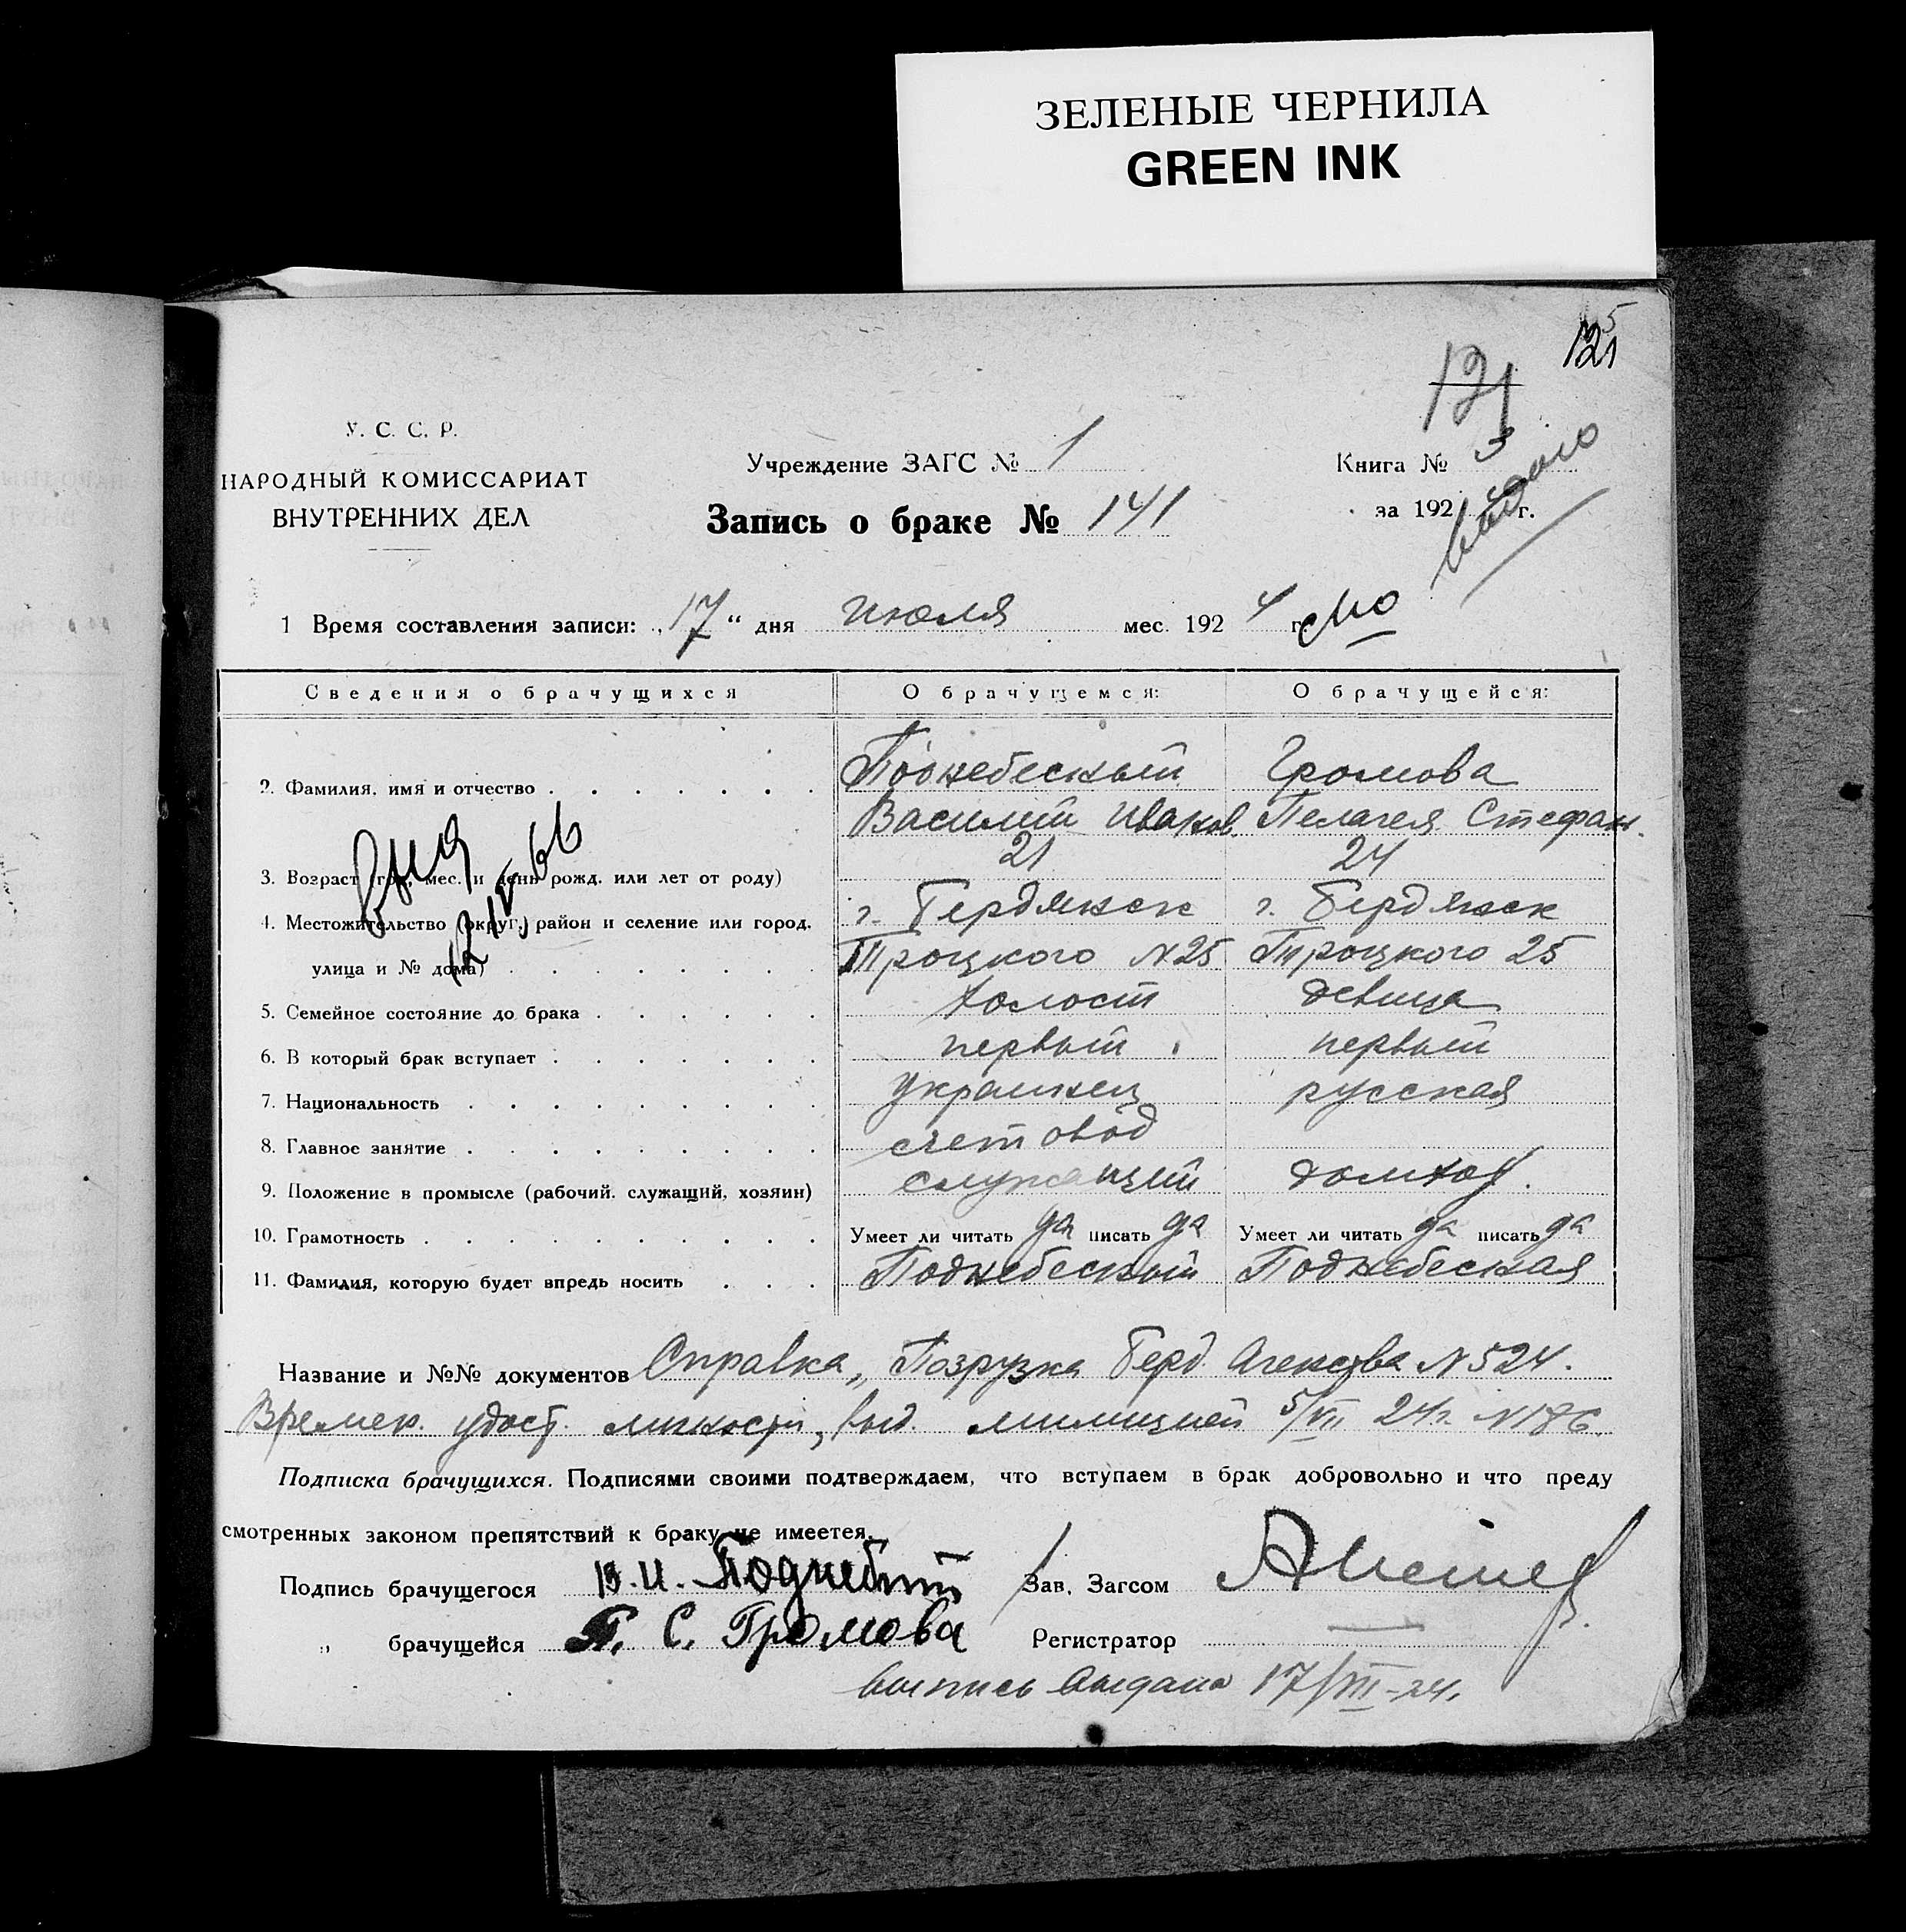 ЗЕЛЕНЫЕ ЧЕРНИЛА
GREEN INK
121
121
У. С. С. Р.
НАРОДНЫЙ КОМИССАРИАТ
ВНУТРЕННИХ ДЕЛ
Учреждение ЗАГС № 1
Запись о браке № 141
Книга № 3
за 192 г.
выдано
1 Время составления записи: „17“ дня июля мес. 1924 г.
Сведения о брачущихся О брачущемся: О брачущейся:
2. Фамилия, имя и отчество Поднебесный Громова
Василий Иванов. Пелагея Стефан.
3. Возраст (год, мес. и день рожд. или лет от роду) 21 24
4. Местожительство (округ, район и селение или город, г. Бердянск г. Бердянск
улица и № дома) Троцкого N 25 Троцкого 25
5. Семейное состояние до брака холост девица
6. В который брак вступает первый первый
7. Национальность украинец русская
8. Главное занятие счетовод
9. Положение в промысле (рабочий, служащий, хозяин) служащий домхоз.
10. Грамотность Умеет ли читать да писать да Умеет ли читать да писать да
11. Фамилия, которую будет впредь носить Поднебесный Поднебесная
Название и №№ документов Справка „ Берд. Агенства N 524.
Времен. удост. личности, выд. милицией 5/VII 24 г. N 186
Подписка брачущихся. Подписями своими подтверждаем, что вступаем в брак добровольно и что преду
смотренных законом препятствий к браку не имеется.
Подпись брачущегося В. И. Поднебный Зав. Загсом
„ брачущейся П. С. Громова Регистратор
выпись выдана 17/VII-24.